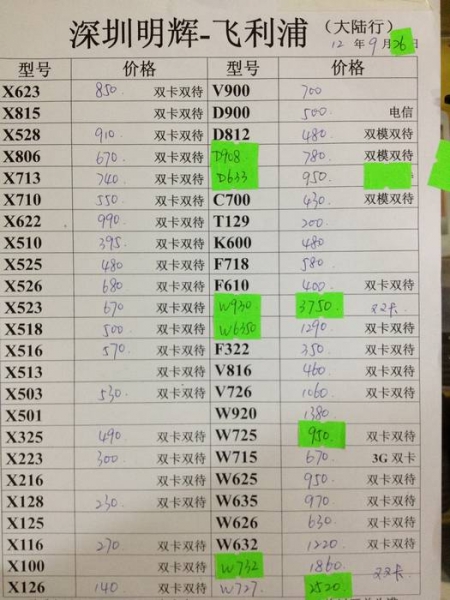 深圳明辉-飞利浦（大陆行）
12年9月26日
型号 价格 型号 价格
X623 850. 双卡双待 V900 700
X815 双卡双待 D900 500. 电信
X528 910. 双卡双待 D812 480. 双模双待
X806 670. 双卡双待 D908 780. 双模双待
X713 740. 双卡双待 D633 950.
X710 550. 双卡双待 C700 430. 双模双待
X622 990. 双卡双待 T129 200.
X510 395. 双卡双待 K600 480
X525 480 双卡双待 F718 580.
X526 680 双卡双待 F610 400. 双卡双待
X523 670 双卡双待 W930 3750. 双卡
X518 500. 双卡双待 W6350 1290. 双卡双待
X516 570. 双卡双待 F322 350. 双卡双待
X513 双卡双待 V816 460. 双卡双待
X503 530. 双卡双待 V726 1060. 双卡双待
X501 W920 1380
X325 490 双卡双待 W725 950. 双卡双待
X223 300. 双卡双待 W715 670. 3G 双卡
X216 双卡双待 W625 950. 双卡双待
X128 230. 双卡双待 W635 970 双卡双待
X125 双卡双待 W626 630. 双卡双待
X116 270 双卡双待 W632 1220. 双卡双待
X100 双卡双待 W732 1860.
X126 140. 双卡双待 W727. 2520.